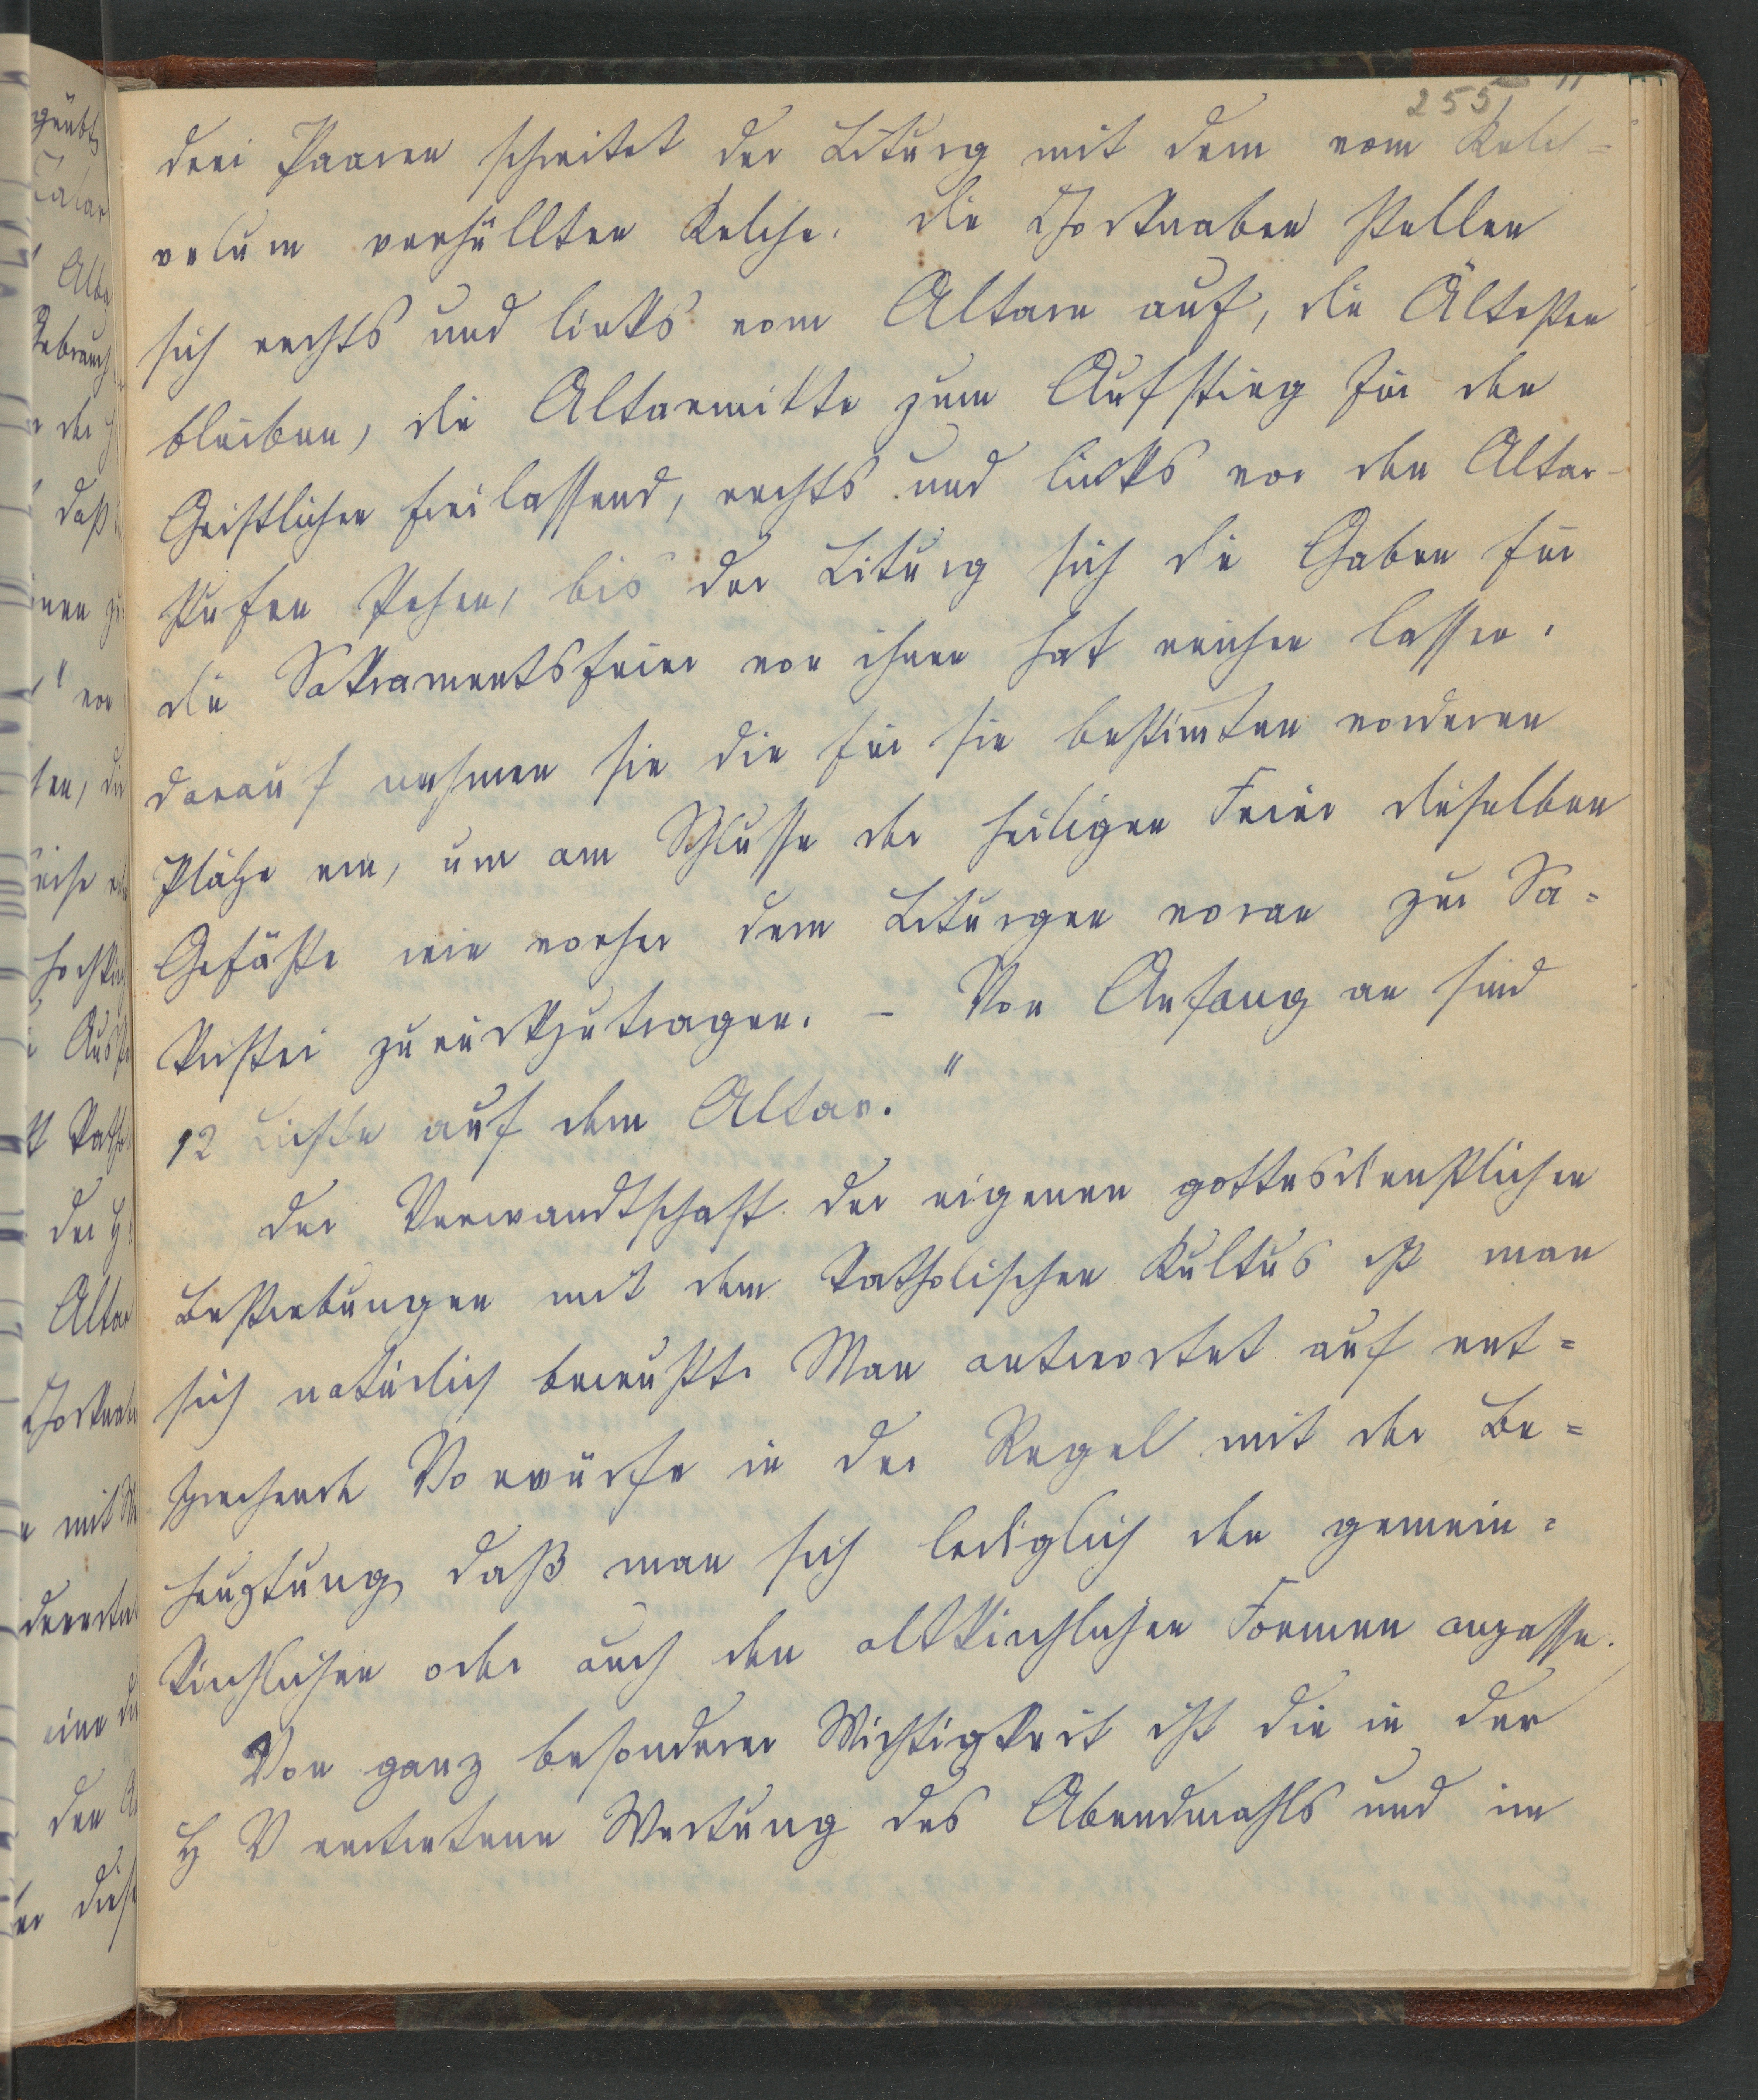 255
drei Paaren schreitet der Liturg mit dem vom Kelch=
velum verhüllten Kelche. Die Chorknaben stellen
sich rechts und links vom Altare auf, die Ältesten
bleiben, die Altarmitte zum Aufstieg für den
Geistlichen freilassend, rechts und links vor den Altar-
stufen stehen, bis der Liturg sich die Gaben für
die Sakramentsfeier von ihnen hat reichen lassen.
Darauf nehmen sie die für sie bestimten vorderen
Plätze ein, um am Schlusse der heiligen Feier dieselben
Gefäße wie vorher dem Liturgen voran zur Sa=
kristei zurückzutragen. – Von Anfang an sind
12 Lichte auf dem Altar."
Der Verwandtschaft der eigenen gottesdienstlichen
Bestrebungen mit dem katholischen Kultus ist man
sich natürlich bewußt. Man antwortet auf ent=
sprechende Vorwürfe in der Regel mit der Be=
hauptung daß man sich lediglich den gemein=
kirchlichen oder auch den altkirchlichen Formen anpasse.
Von ganz besonderer Wichtigkeit ist die in der
H V vertretene Wertung des Abendmahls und im